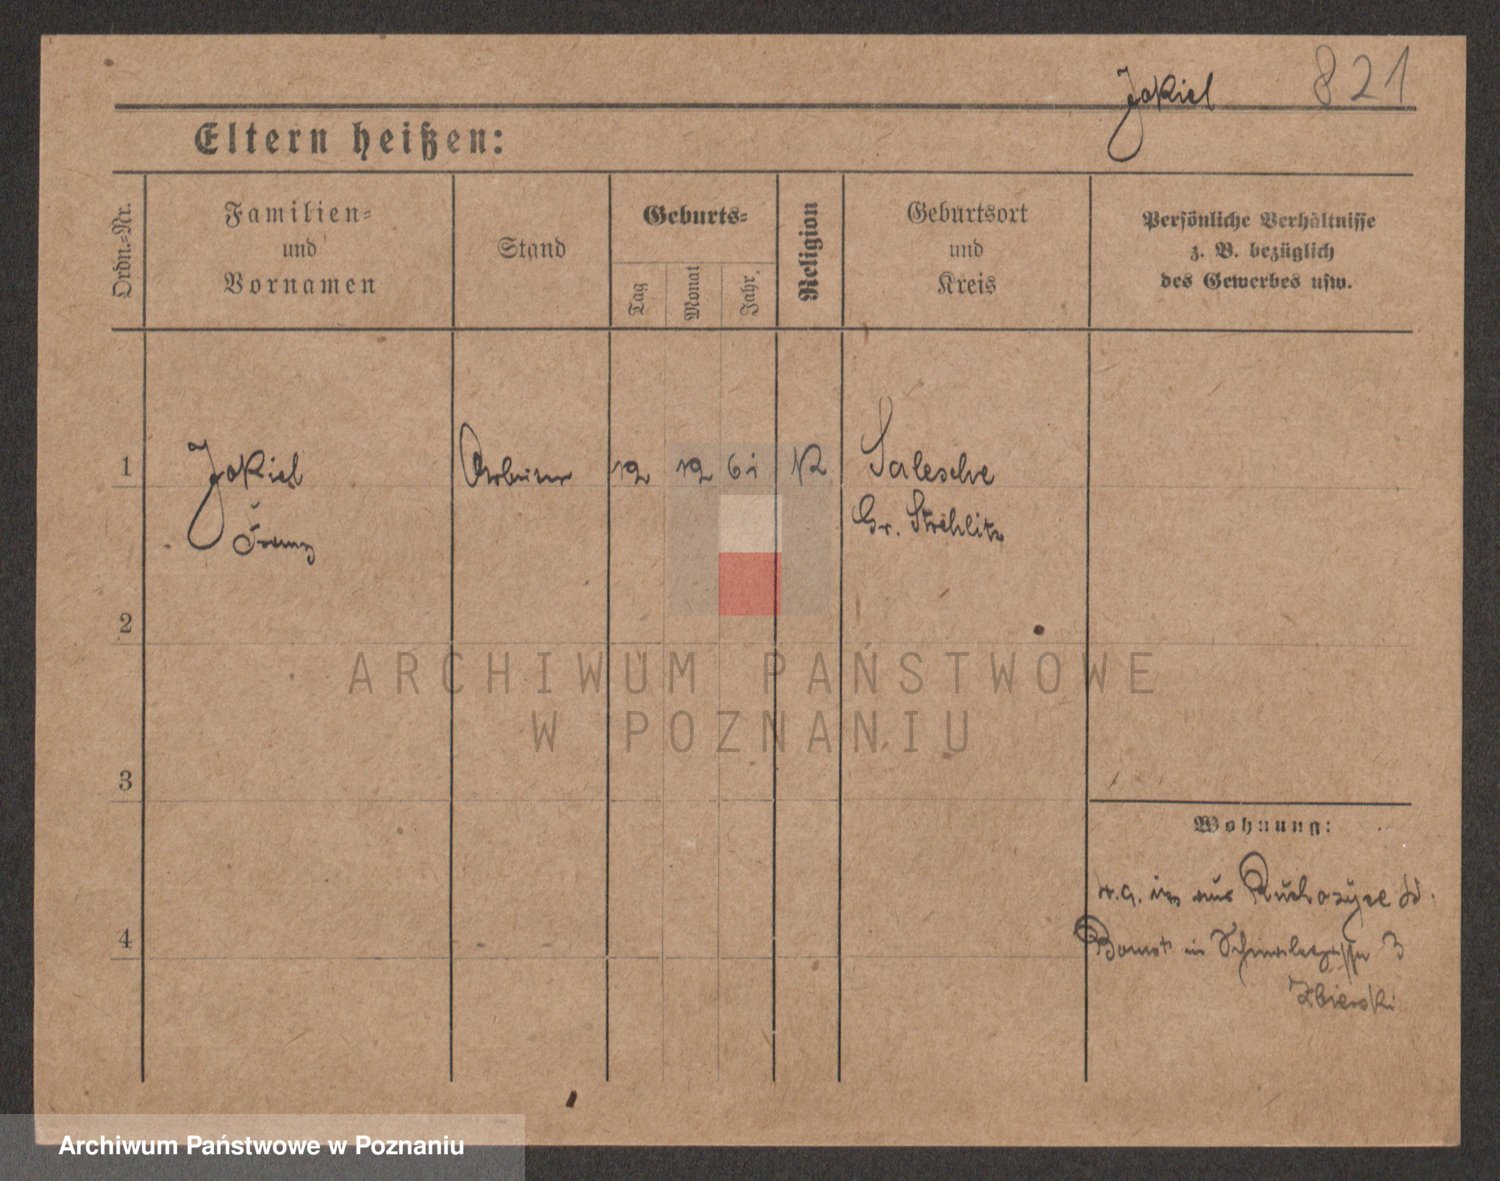 Jokiel
821
Eltern heißen:
Ordn.-Nr.
Familien-
und
Vornamen
Stand
Geburts-
Tag
Monat
Jahr
Religion
Geburtsort
und
Kreis
Persönliche Verhältnisse
z. B. bezüglich
des Gewerbes usw.
1
Jokiel
Franz
Arbeiter
12
12
61
K
Salesche
Gr. Strehlitz
2
ARCHIWUM PAŃSTWOWE
W POZNANIU
3
Wohnung:
aus
4
Bomst in 3
Zbierski
Archiwum Państwowe w Poznaniu